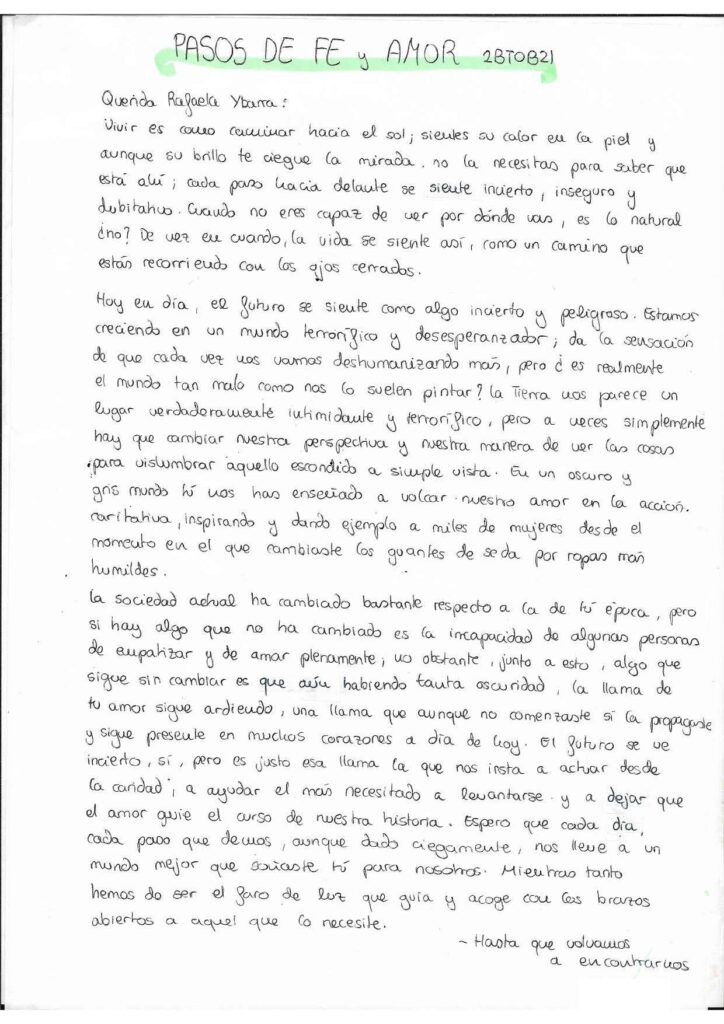 PASOS DE FE y AMOR 2BTOB21
Querida Rafaela Ybarra:
Vivir es como caminar hacia el sol; sientes su calor en la piel y
aunque su brillo te ciegue la mirada. no la necesitas para saber que
está ahí; cada paso hacia delante se siente incierto, inseguro y
dubitativo. Cuando no eres capaz de ver por dónde vas, es lo natural
¿no? De vez en cuando, la vida se siente así, como un camino que
estás recorriendo con los ojos cerrados.
Hoy en día, el futuro se siente como algo incierto y peligroso. Estamos
creciendo en un mundo terrorífico y desesperanzador; da la sensación
de que cada vez nos vamos deshumanizando más, pero ¿es realmente
el mundo tan malo como nos lo suelen pintar? la Tierra nos parece un
lugar verdaderamente intimidante y terrorífico, pero a veces simplemente
hay que cambiar nuestra perspectiva y nuestra manera de ver las cosas
para vislumbrar aquello escondido a simple vista. En un oscuro y
gris mundo tú nos has enseñado a volcar nuestro amor en la acción.
caritativa, inspirando y dando ejemplo a miles de mujeres desde el
momento en el que cambiaste los guantes de seda por ropas más
humildes.
la sociedad actual ha cambiado bastante respecto a la de tú época, pero
si hay algo que no ha cambiado es la incapacidad de algunas personas
de empatizar y de amar plenamente; no obstante, junto a esto, algo que
sigue sin cambiar es que aún habiendo tanta oscuridad, la llama de
tu amor sigue ardiendo, una llama que aunque no comenzaste sí la propagaste
y sigue presente en muchos corazones a día de hoy. El futuro se ve
incierto, sí, pero es justo esa llama la que nos insta a actuar desde
la caridad; a ayudar el más necesitado a levantarse y a dejar que
el amor guíe el curso de nuestra historia. Espero que cada día,
cada paso que demos, aunque dado ciegamente, nos lleve a un
mundo mejor que soñaste tú para nosotros. Mientras tanto
hemos de ser el faro de luz que guía y acoge con los brazos
abiertos a aquel que lo necesite.
- Hasta que volvamos
a encontrarnos